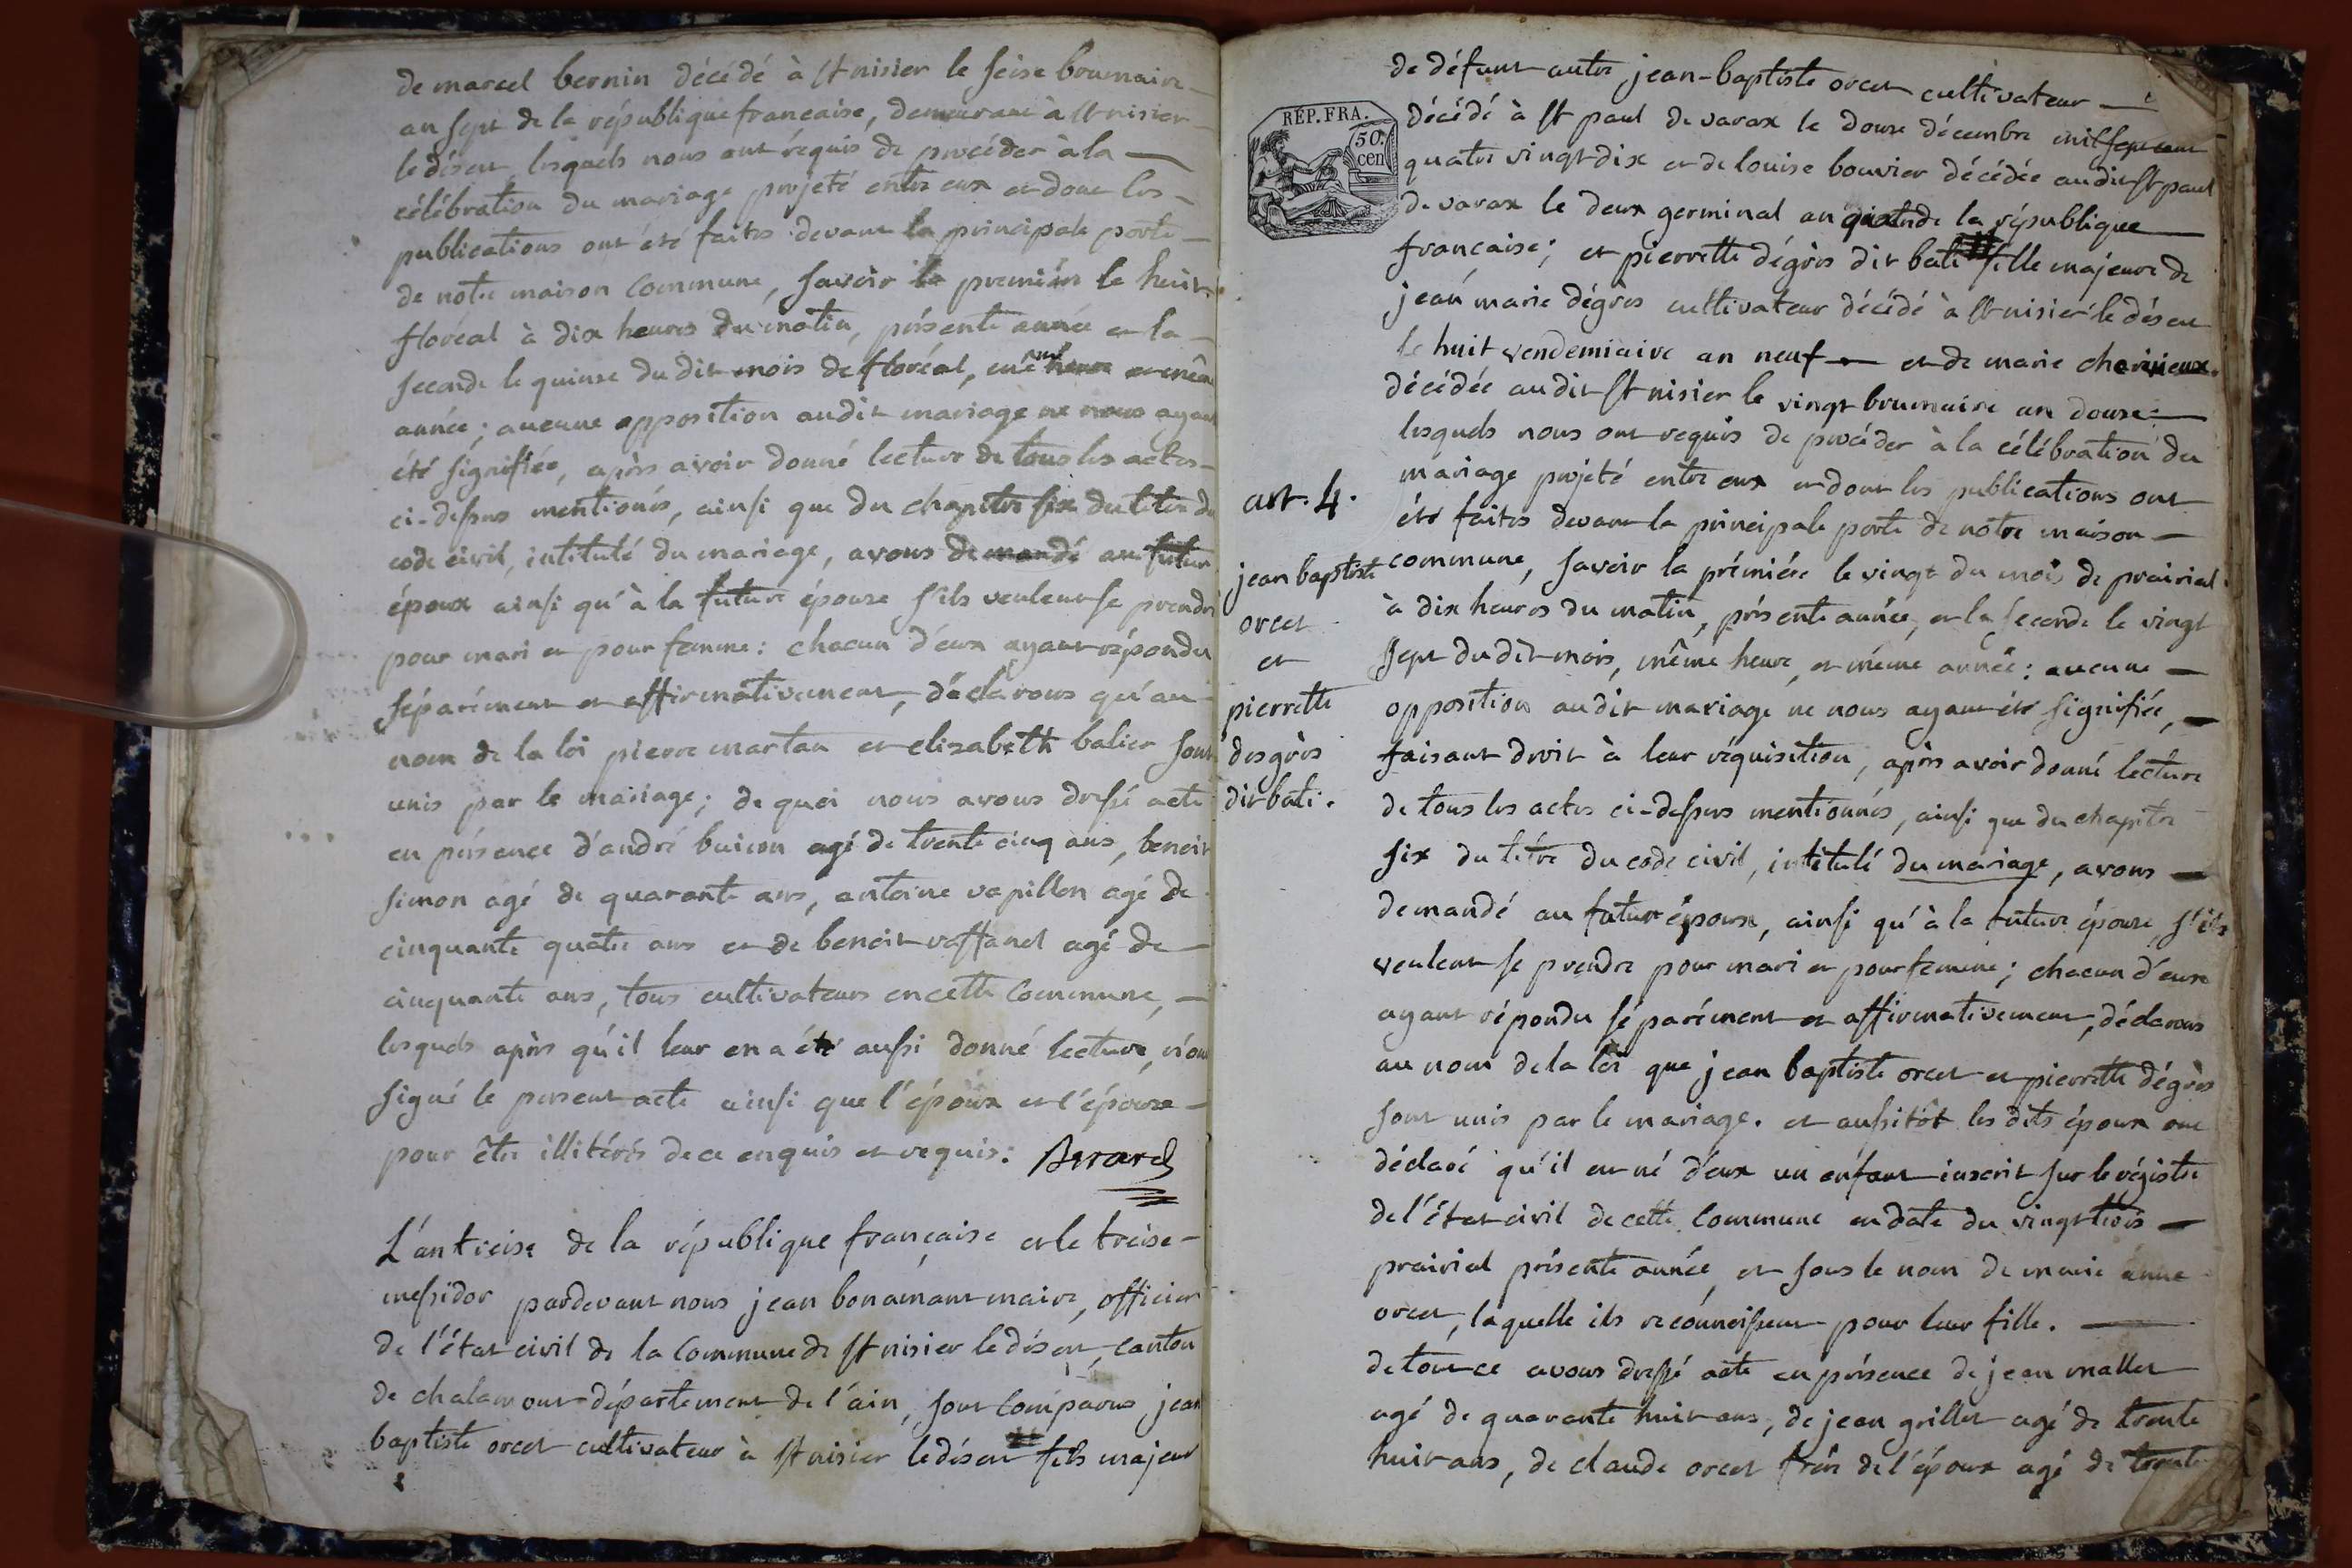 de marcel bernin décédé à St nisier le seise brumaire
an sept de la république francaise, demeurant à St nisier
le désert, lesquels nous ont réquis de procéder à la
célébration du mariage projeté entre eux et dont les
publications ont été faites devant la principale porte
de notre maison commune, savoir la premiére le huit
floréal à dix heures du matin, présente année et la
seconde le quinse du dit mois de floréal, même heure et même
année; aucune opposition audit mariage ne nous ayant
été signifiée, après avoir donné lecture de tous les actes
ci-dessus mentionés, ainsi que du chapitre six du titre du
code civil, intitulé du mariage, avons demandé au futur
époux ainsi qu'à la future épouse s'ils veulent se prendre
pour mari et pour femme: chacun d'eux ayant répondu
séparément et affirmativement, déclarons qu'au
nom de la loi pierre martan et elisabeth balier sont
unis par le mariage; de quoi nous avons dressé acte
en présence d'andré buison agé de trente cinq ans, benoit
simon agé de quarante ans, antoine vapillon agé de
cinquante quatre ans et de benoit raffanel agé de
cinquante ans, tous cultivateurs en cette commune,
lesquels après qu'il leur en a été aussi donné lecture, n'ont
signé le present acte ainsi que l'époux et l'épouse
pour être illitérés de ce enquis et requis. Berard
L'an treise de la république française et le treise
messidor pardevant nous jean bonamant maire, officier
de l'état civil de la commune de St nisier le désert, canton
de chalamont département de l'ain, sont comparus jean
baptiste orcet cultivateur à St nisier le désert fils majeur
RÉP. FRA.
50.
cen
de défunt autre jean-baptiste orcet cultivateur
décédé à St paul de varax le douze décembre mil sept cent
quatre vingt dix et de louise bouvier décédée audit St paul
de varax le deux germinal an de la république
française; et pierrette dégrès dit bati fille majeure de
jean marie dégrès cultivateur décédé à St nisier le désert
le huit vendemiaire an neuf et de marie
décédée audit St nisier le vingt brumaire an douze
lesquels nous ont requis de procéder à la célébration du
mariage projeté entre eux et dont les publications ont
été faites devant la principale porte de notre maison
commune, savoir la prémiére le vingt du mois de prairial
à dix heures du matin, présente année, et la seconde le vingt
sept dudit mois, même heure, et même année: aucune
opposition audit mariage ne nous ayant été signifiée,
faisant droit à leur réquisition, après avoir donné lecture
de tous les actes ci-dessus mentionnés, ainsi que du chapitre
six du titre du code civil, intitulé du mariage, avons
demandé au futur époux, ainsi qu'à la future épouse, s'ils
veulent se prendre pour mari et pour femme; chacun d'eux
ayant répondu séparément et affirmativement, déclarons
au nom de la loi que jean baptiste orcet et pierrette dégrès
sont unis par le mariage. et aussitôt les dits époux ont
déclaré qu'il est né d'eux un enfant inscrit sur le régistre
de l'état civil de cette commune en date du vingt trois
prairial présente année, et sous le nom de marie anne
orcet, laquelle ils reconnoissent pour leur fille.
de tout ce avons dressé acte en présence de jean mallet
agé de quarante huit ans, de jean grillet agé de trente
huit ans, de claude orcet frère de l'époux agé de trente
art. 4.
jean baptiste
orcet
et
pierrette
desgrès
dit bati.